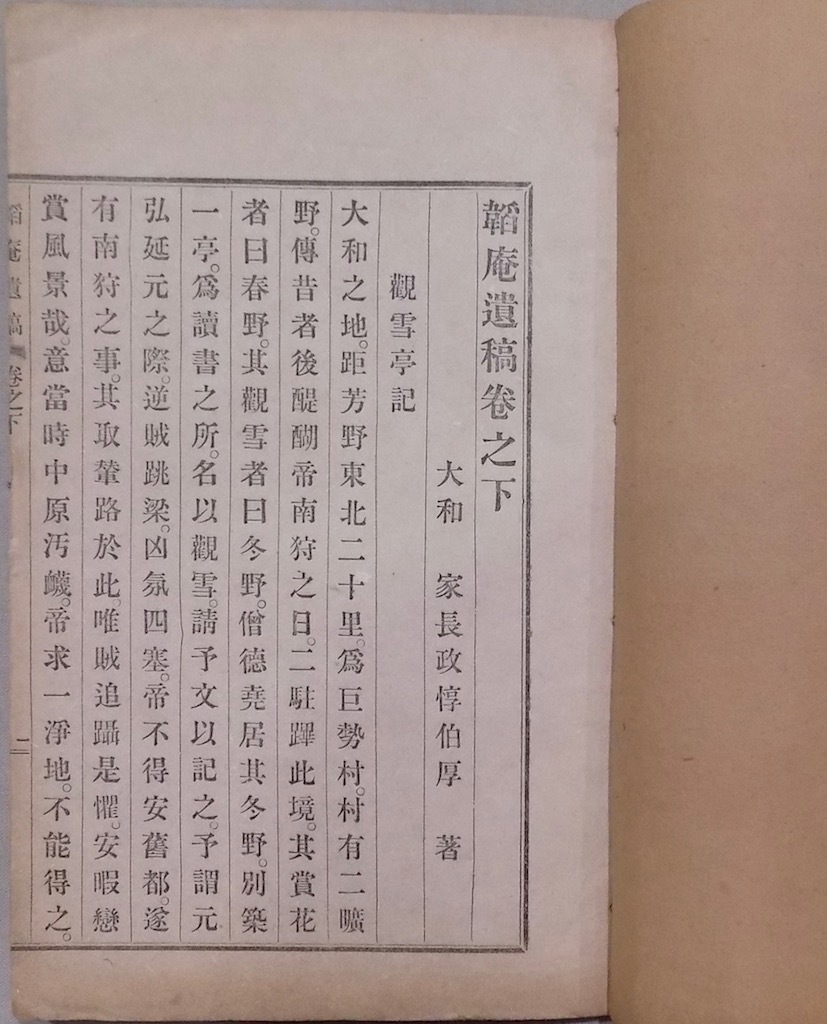 韜庵遺稿卷之下
大和 家長政惇伯厚 著
觀雪亭記
大和之地。距芳野東北二十里。爲巨勢村。村有二曠
野。傳昔者後醍醐帝南狩之日。二駐蹕此境。其賞花
者曰春野。其觀雪者曰冬野。僧德堯居其冬野。別築
一亭。爲讀書之所。名以觀雪。請予文以記之。予謂元
弘延元之際。逆賊跳梁。凶氛四塞。帝不得安舊都。遂
有南狩之事。其取輦路於此。唯賊追躡是懼。安暇戀
賞風景哉。意當時中原汚衊。帝求一淨地。不能得之。
韜庵遺稿 卷之下 一